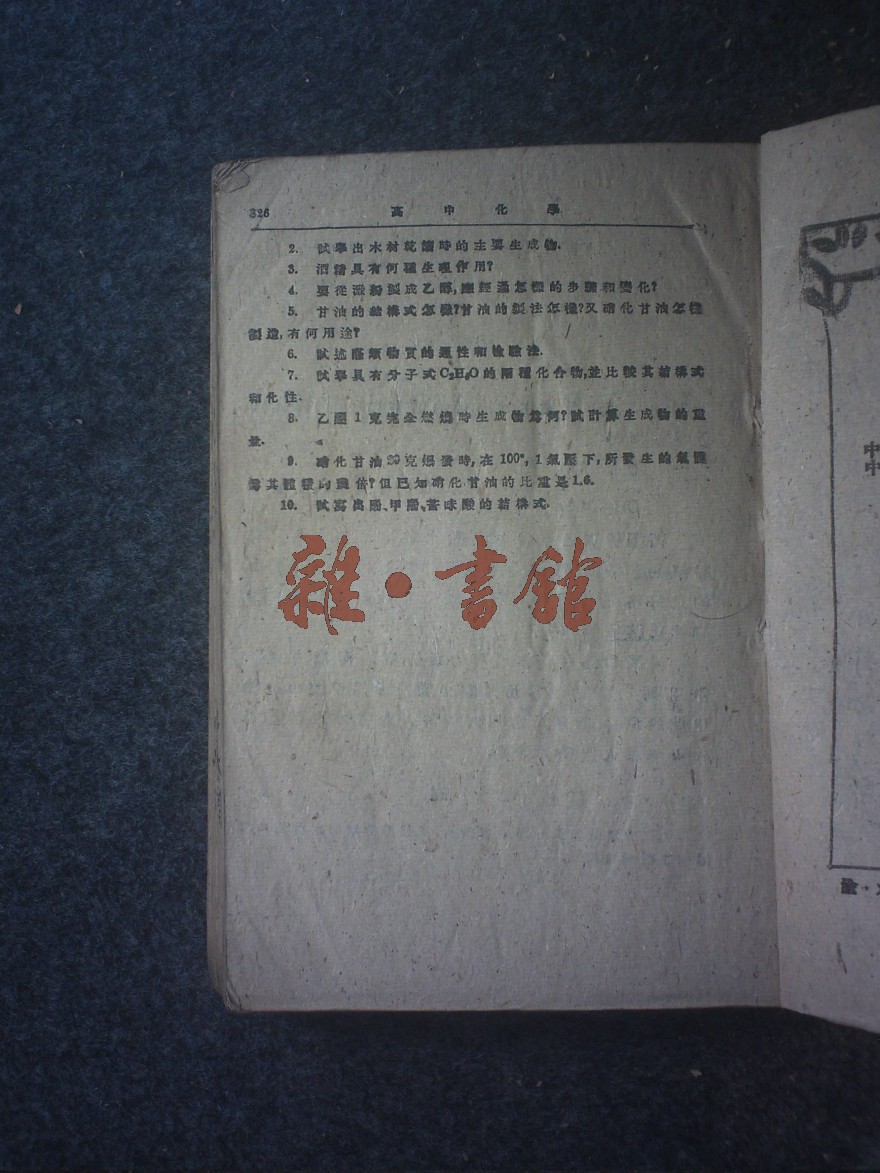 326 高中化學
2. 試舉出木材乾餾時的主要生成物.
3. 酒精具有何種生理作用?
4. 要從澱粉製成乙醇,應經過怎樣的步驟和變化?
5. 甘油的結構式怎樣?甘油的製法怎樣?又硝化甘油怎樣
製造,有何用途?
6. 試述醛類物質的通性和檢驗法.
7. 試舉具有分子式C₂H₆O的兩種化合物,並比較其結構式
和化性.
8. 乙醚1克完全燃燒時生成物爲何?試計算生成物的重
量.
9. 硝化甘油 克爆發時,在100°,1氣壓下,所發生的氣體
爲其體積的幾倍?但已知硝化甘油的比重是1.6.
10. 試寫出酚、甲酚、苦味酸的結構式.
雜·書館
中
中